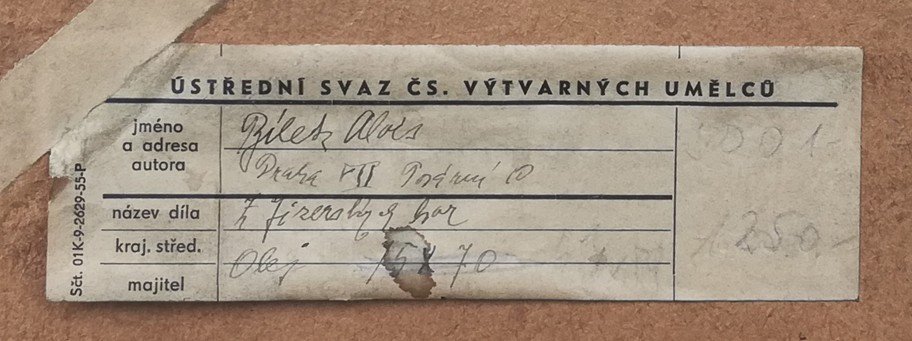 ÚSTŘEDNÍ SVAZ ČS. VÝTVARNÝCH UMĚLCŮ
jméno
a adresa
autora
Bílek Alois
Praha VII
název díla
Z Jizerských hor
kraj. střed.
Olej 75 X 70
majitel
1250.-
Sčt. 01K-9-2629-55-P